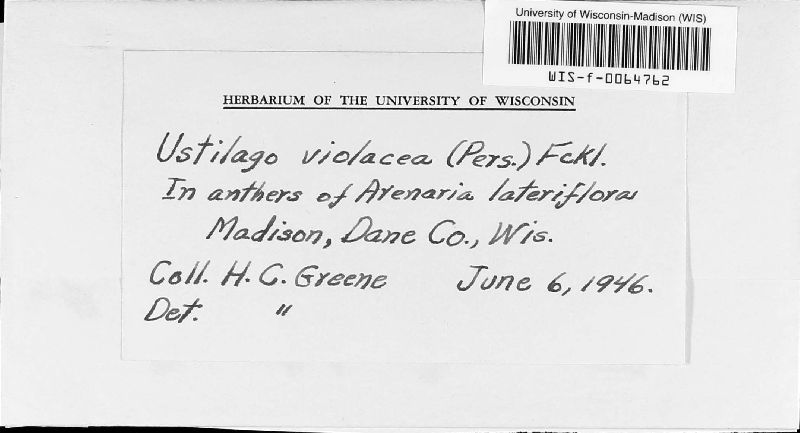 University of Wisconsin-Madison (WIS)
WIS-f-0064762
HERBARIUM OF THE UNIVERSITY OF WISCONSIN
Ustilago violacea (Pers.) Fckl.
In anthers of Arenaria lateriflora
Madison, Dane Co., Wis.
Coll. H. C. Greene June 6, 1946.
Det. "